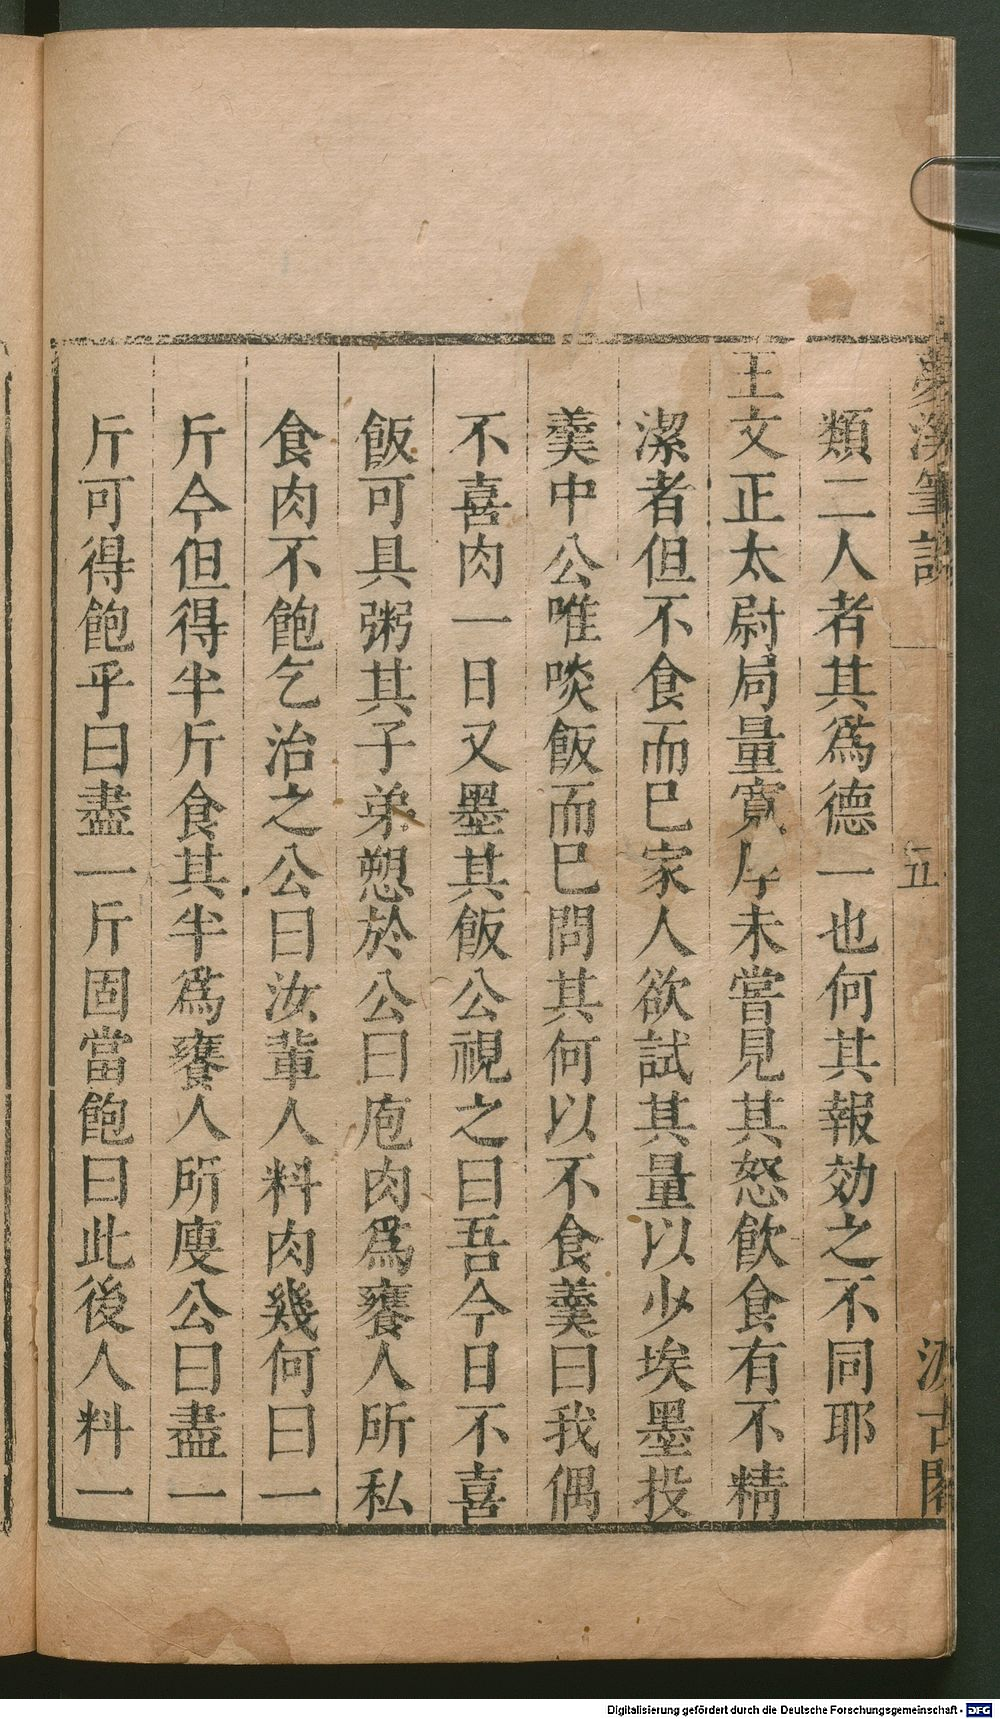 夢溪筆談
五
汲古閣
類二人者其爲德一也何其報効之不同耶
王文正太尉局量寬厚未嘗見其怒飲食有不精
潔者但不食而已家人欲試其量以少埃墨投
羹中公唯啖飯而已問其何以不食羹曰我偶
不喜肉一日又墨其飯公視之曰吾今日不喜
飯可具粥其子弟愬於公曰庖肉爲饔人所私
食肉不飽乞治之公曰汝輩人料肉幾何曰一
斤今但得半斤食其半爲饔人所廋公曰盡一
斤可得飽乎曰盡一斤固當飽曰此後人料一
Digitalisierung gefördert durch die Deutsche Forschungsgemeinschaft - DFG